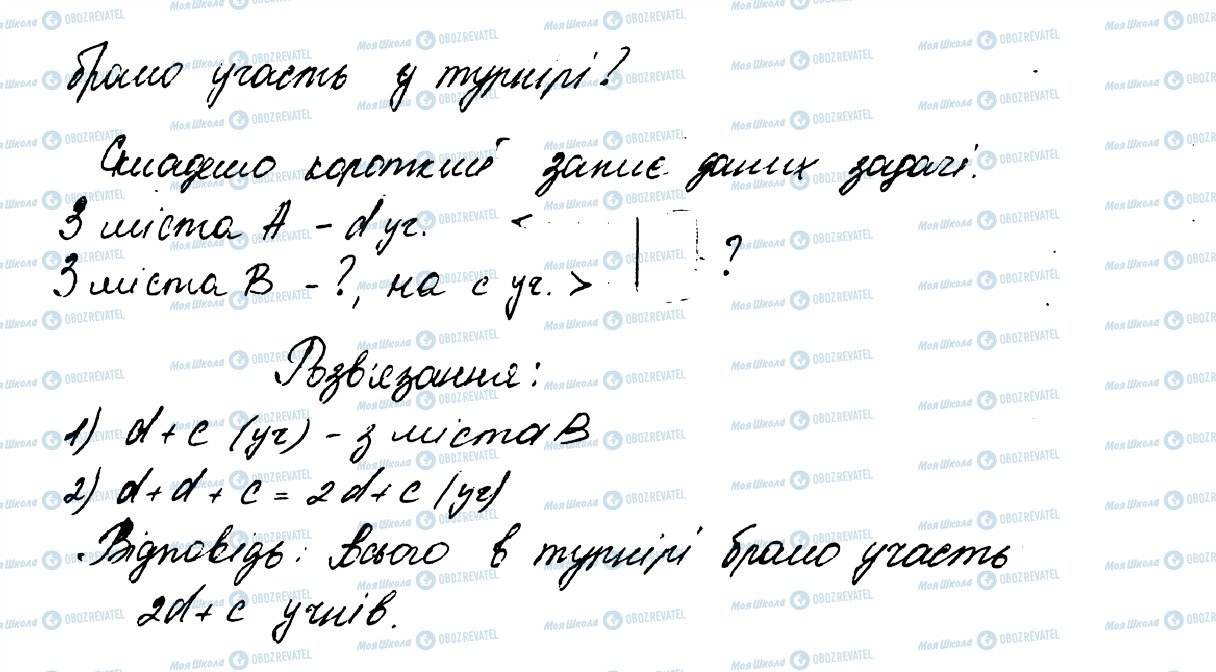 брало участь у турнірі?
Складемо короткий запис даних задачі.
З міста А – d уч.
?
З міста В – ?, на с уч. >
Розв'язання:
1) d + c (уч) – з міста В
2) d + d + c = 2d + c (уч)
Відповідь: Всього в турнірі брало участь
2d + c учнів.